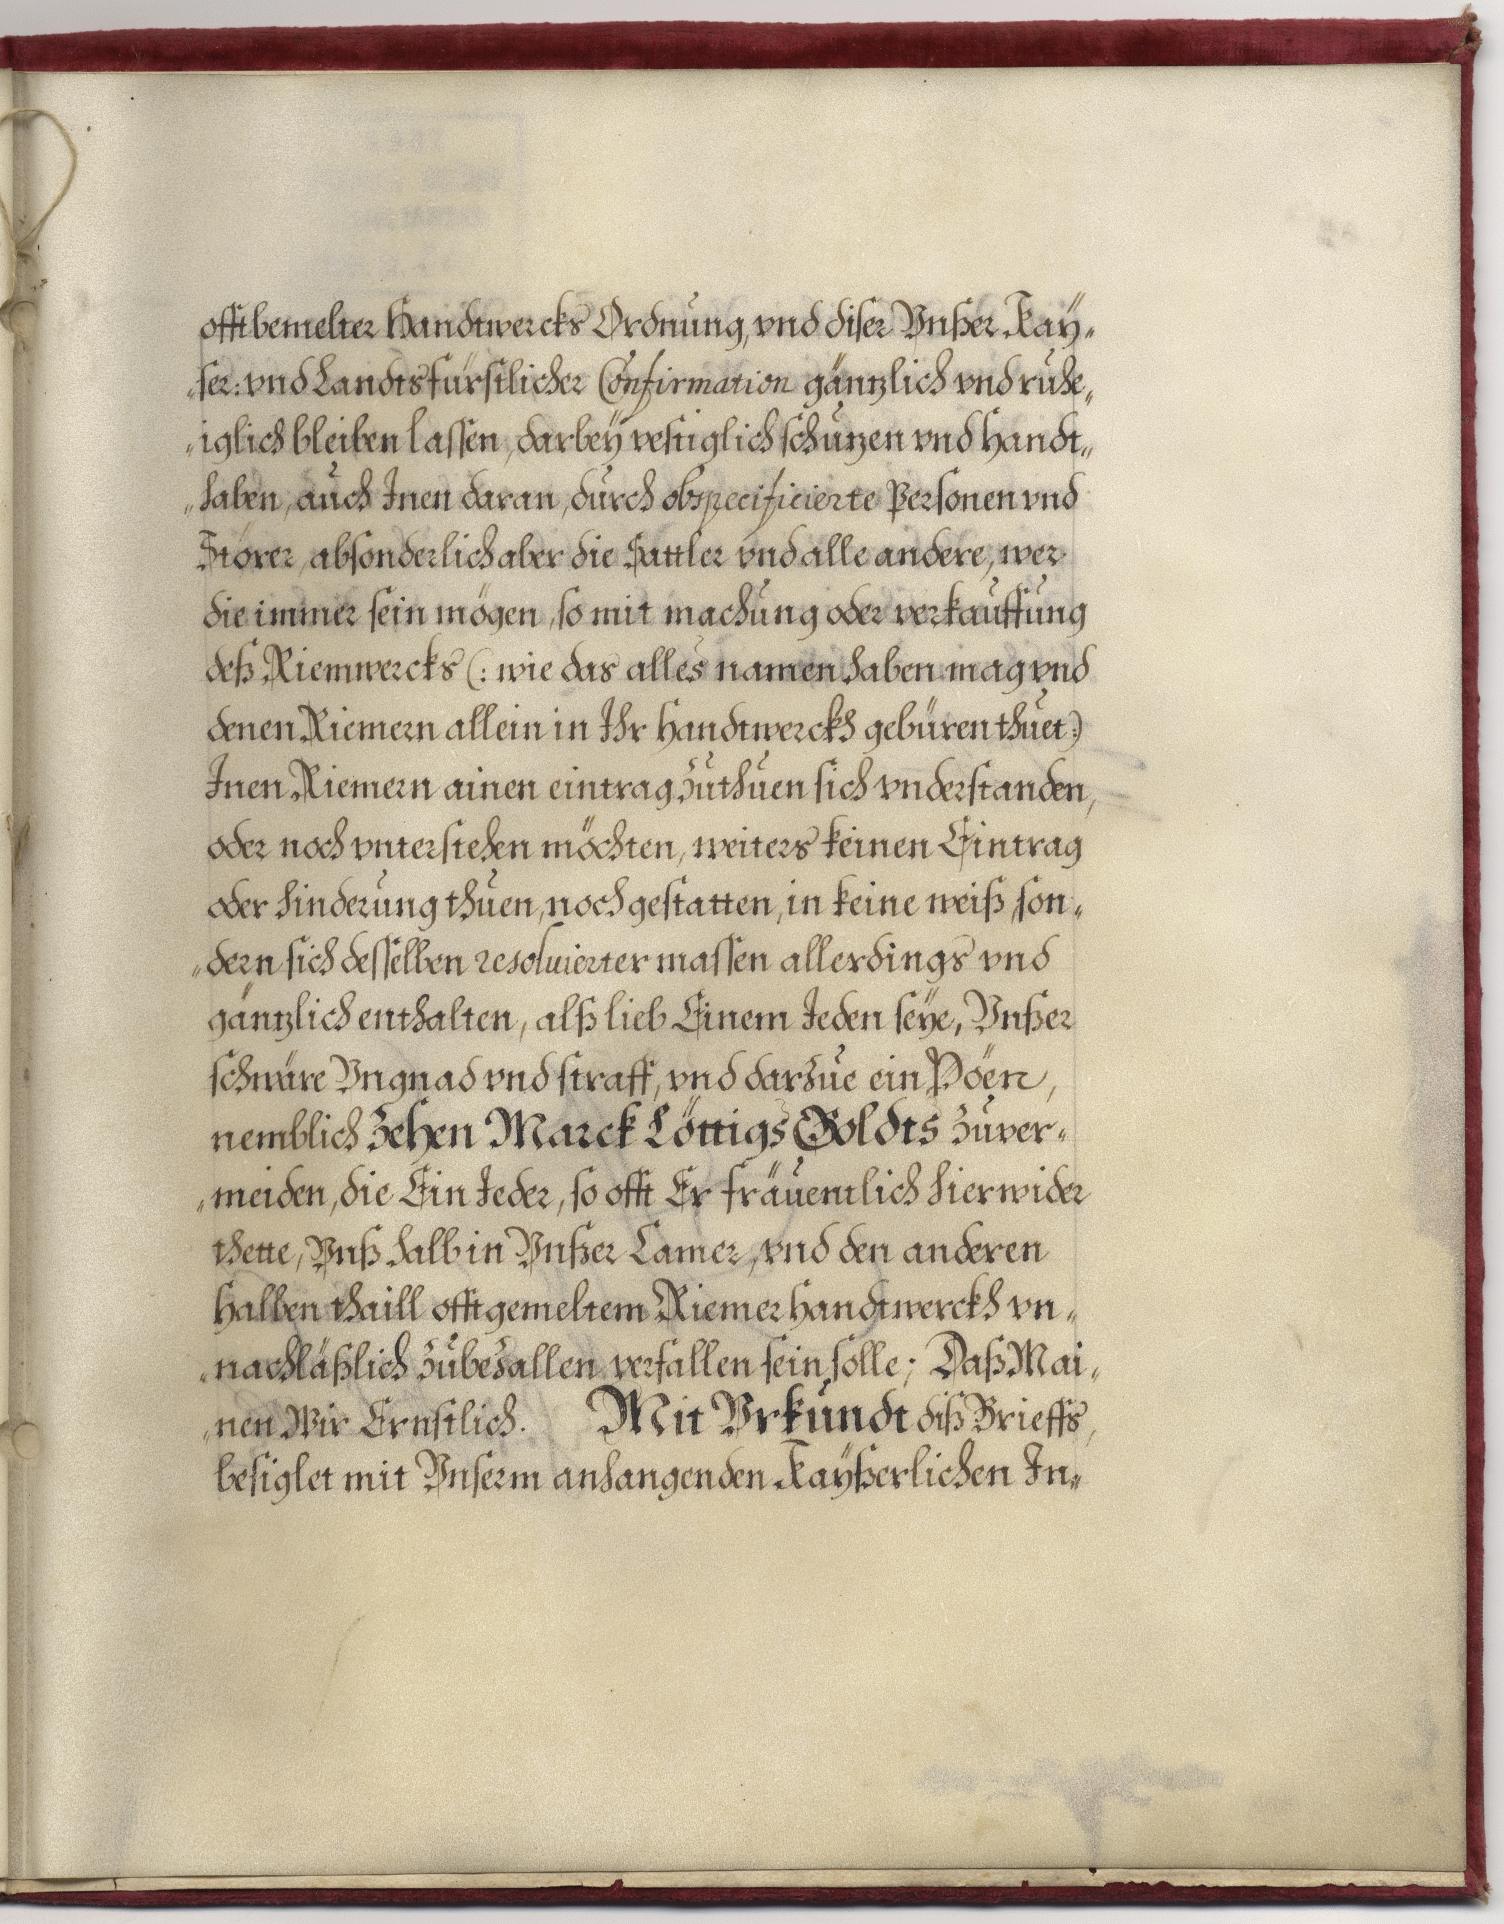 offtbemelter Handtwercks Ordnung, vnd diser Vnßer Kaÿ„
„ser: vnd Landtsfürstlicher Confirmation gäntzlich vnd ruhe„
„iglich bleiben lassen, darbeÿ vestiglich schutzen vnd handt„
„haben, auch Inen daran, durch obspecificierte Personen vnd
Störer, absonderlich aber die Sattler vnd alle andere, wer
die immer sein mögen, so mit machung oder verkauffung
deß Riemwercks (: wie das alles namen haben mag vnd
denen Riemern allein in Ihr Handtwerckh gebüren thuet:)
Inen Riemern ainen eintrag zuthuen sich vnderstanden,
oder noch vnterstehen möchten, weiters keinen Eintrag
oder hinderung thuen, noch gestatten, in keine weiß, son„
„dern sich desselben resoluierter massen allerdings vnd
gäntzlich enthalten, alß lieb Einem Jeden seÿe, Vnßer
schwäre Vngnad vnd straff, vnd darzue ein Pöen,
nemblich Zehen Marck Löttigs Goldts zuuer„
„meiden, die Ein Jeder, so offt Er fräuentlich hierwider
thette, Vnß halb in Vnßer Camer, vnd den anderen
halben thaill offtgemeltem Riemer handtwerckh vn„
„nachläßlich zubezallen verfallen sein solle; Daß Mai„
„nen Wir Ernstlich. Mit Vrkundt diß Brieffs,
besiglet mit Vnserm anhangenden Kaÿßerlichen In„